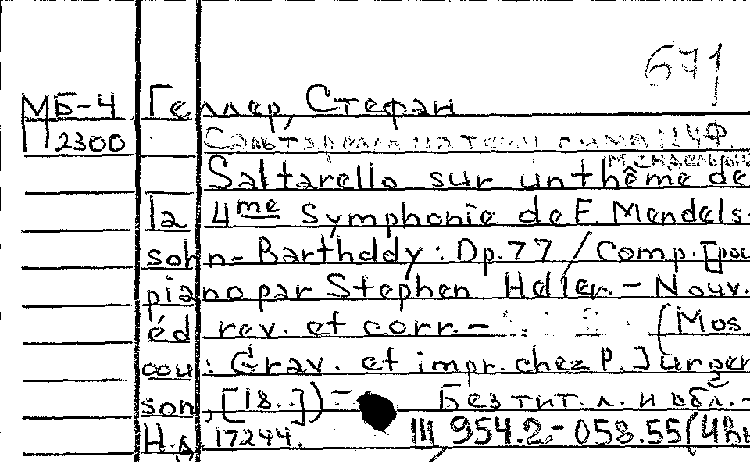 671
МБ-4 Геллер, Стефан
П 2300
Saltarello sur un thême de
la 4me Symphonie de F. Mendels-
sohn-Bartholdy: Op. 77 / Comp. [pou
piano par Stephen Heller. - Nouv.
éd rev. et corr. - (Mos
cou: Grav. et impr. chez P. Jurgen
son, [18..]) - Без тит. л. и обл. -
Н.д. 17244. III 954.2-058.55(4Ви